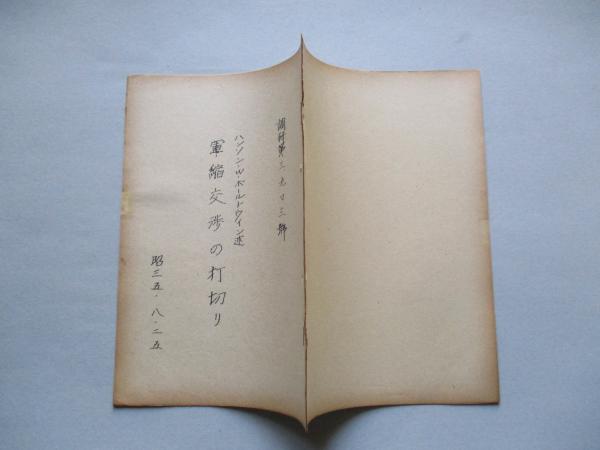 調財第三九日三号
ハンソン・W・ボールドウィン述
軍縮交渉の打切り
昭三五・八・二五